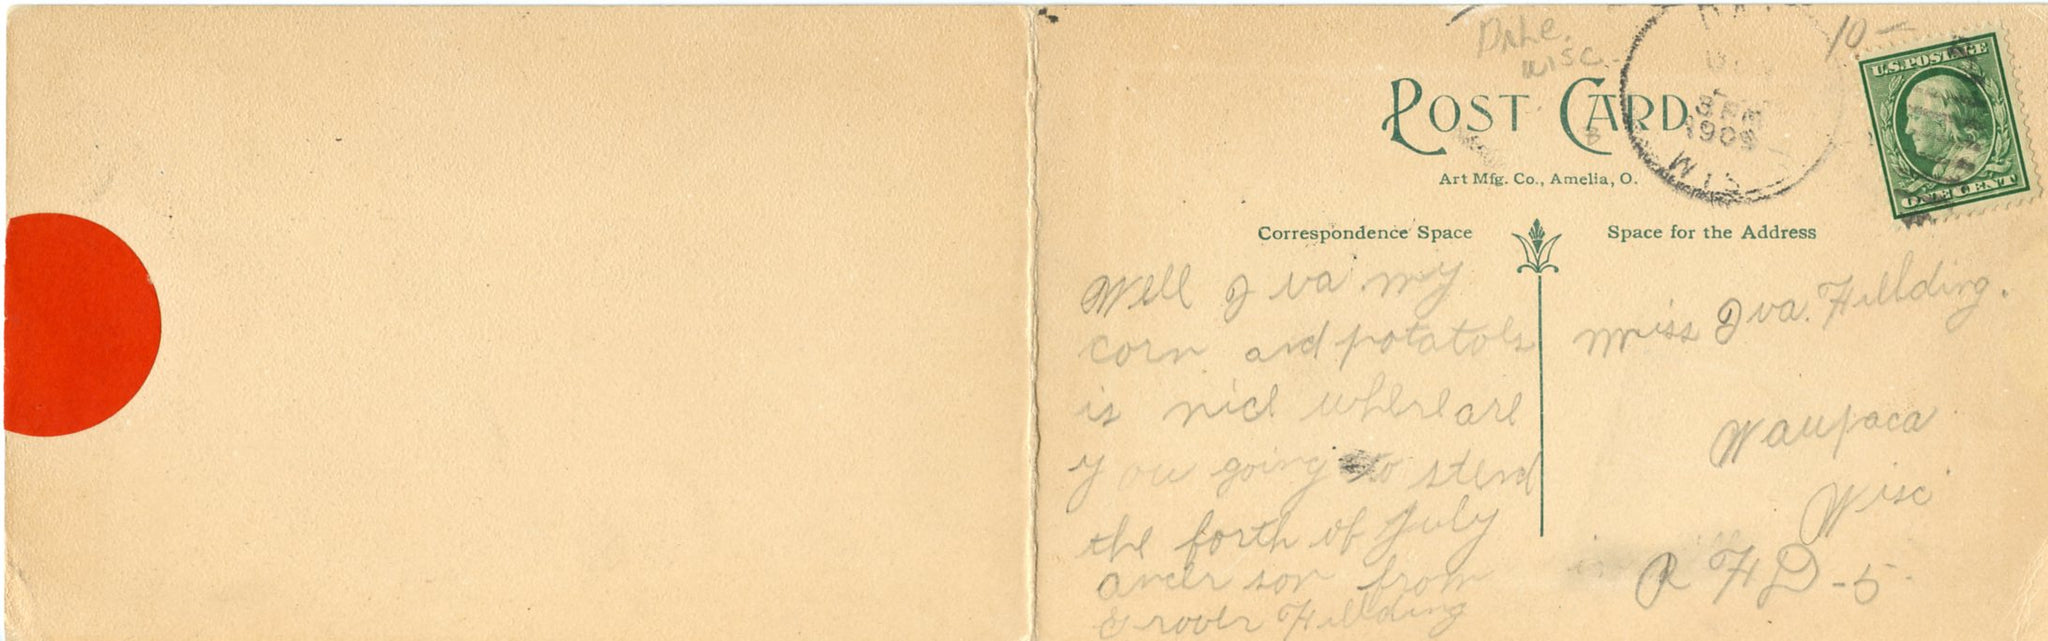 Dale.
Wisc.
10-
U.S. POSTAGE
POST CARD
3 PM
1909
WIS
ONE CENT
Art Mfg. Co., Amelia, O.
Correspondence Space
Space for the Address
Well Iva my
corn and potatols
is nice where are
you going to stend
the forth of July
ancer son from
Grover Fillding
Miss Iva. Fillding.
Waupaca
Wisc
R F D - 5